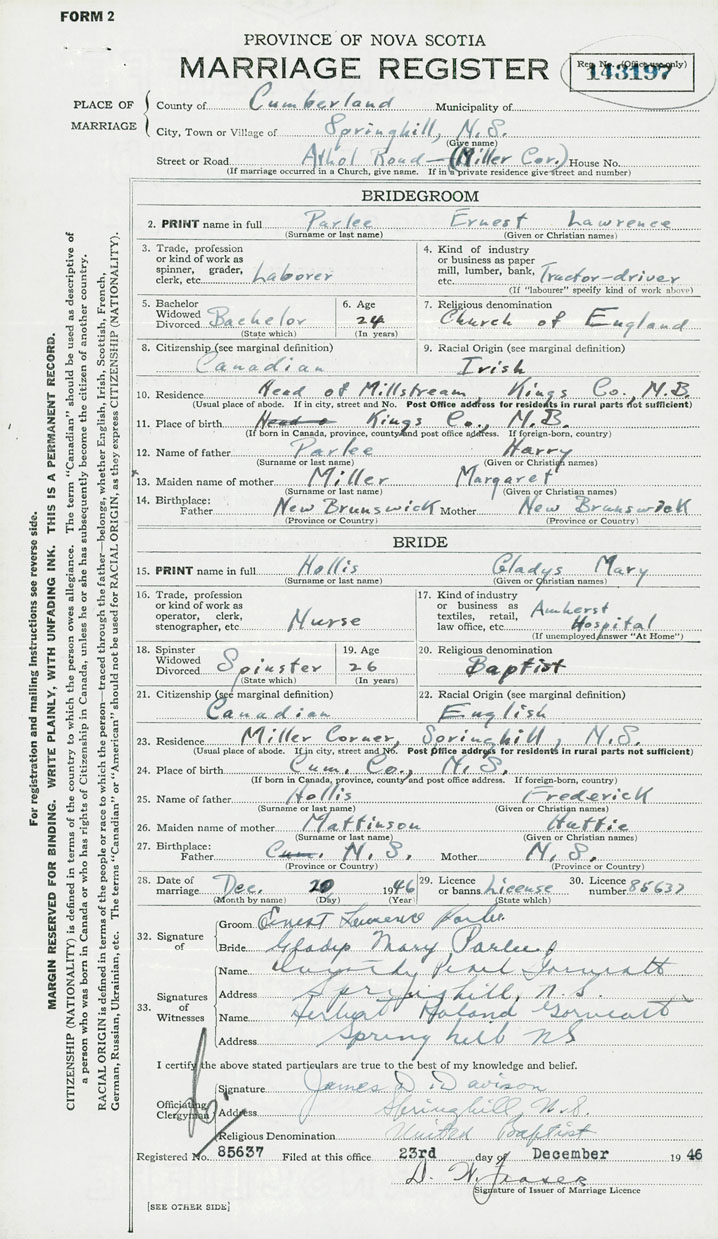 FORM 2
PROVINCE OF NOVA SCOTIA
MARRIAGE REGISTER
Reg. No. (Office use only)
143197
PLACE OF MARRIAGE
County of Cumberland Municipality of
City, Town or Village of Springhill, N.S.
(Give name)
Street or Road Athol Road — (Miller Cor.) House No.
(If marriage occurred in a Church, give name. If in a private residence give street and number)
BRIDEGROOM
2. PRINT name in full Parlee Ernest Lawrence
(Surname or last name) (Given or Christian names)
3. Trade, profession or kind of work as spinner, grader, clerk, etc. Laborer
4. Kind of industry or business as paper mill, lumber, bank, etc. Tractor-driver
(If "labourer" specify kind of work above)
5. Bachelor Widowed Divorced Bachelor
(State which)
6. Age 24
(In years)
7. Religious denomination
Church of England
8. Citizenship (see marginal definition)
Canadian
9. Racial Origin (see marginal definition)
Irish
10. Residence Head of Millstream Kings Co., N.B.
(Usual place of abode. If in city, street and No. Post Office address for residents in rural parts not sufficient)
11. Place of birth Head o Kings Co., N.B.
(If born in Canada, province, county and post office address. If foreign-born, country)
12. Name of father Parlee Harry
(Surname or last name) (Given or Christian names)
13. Maiden name of mother Miller Margaret
(Surname or last name) (Given or Christian names)
14. Birthplace: Father New Brunswick Mother New Brunswick
(Province or Country) (Province or Country)
BRIDE
15. PRINT name in full Hollis Gladys Mary
(Surname or last name) (Given or Christian names)
16. Trade, profession or kind of work as operator, clerk, stenographer, etc. Nurse
17. Kind of industry or business as textiles, retail, law office, etc. Amherst Hospital
(If unemployed answer "At Home")
18. Spinster Widowed Divorced Spinster
(State which)
19. Age 26
(In years)
20. Religious denomination
Baptist
21. Citizenship (see marginal definition)
Canadian
22. Racial Origin (see marginal definition)
English
23. Residence Miller Corner, Springhill, N.S.
(Usual place of abode. If in city, street and No. Post Office address for residents in rural parts not sufficient)
24. Place of birth Cum. Co., N.S.
(If born in Canada, province, county and post office address. If foreign-born, country)
25. Name of father Hollis Frederick
(Surname or last name) (Given or Christian names)
26. Maiden name of mother Mattinson Hattie
(Surname or last name) (Given or Christian names)
27. Birthplace: Father Cum. N.S. Mother N.S.
(Province or Country) (Province or Country)
28. Date of marriage Dec. 20 1946
(Month by name) (Day) (Year)
29. Licence or banns License
(State which)
30. Licence number 85637
32. Signature of
Groom Ernest Lawrence Parlee
Bride Gladys Mary Parlee
33. Signatures of Witnesses
Name Pearl
Address Springhill, N.S.
Name Herbert Roland
Address Springhill NS
I certify the above stated particulars are true to the best of my knowledge and belief.
Officiating Clergyman
Signature James D. Davison
Address Springhill, N.S.
Religious Denomination United Baptist
Registered No. 85637 Filed at this office 23rd day of December 1946
D. W. Fraser
Signature of Issuer of Marriage Licence
[SEE OTHER SIDE]
For registration and mailing instructions see reverse side.
MARGIN RESERVED FOR BINDING. WRITE PLAINLY, WITH UNFADING INK. THIS IS A PERMANENT RECORD.
CITIZENSHIP (NATIONALITY) is defined in terms of the country to which the person owes allegiance. The term "Canadian" should be used as descriptive of
a person who was born in Canada or who has rights of Citizenship in Canada, unless he or she has subsequently become the citizen of another country.
RACIAL ORIGIN is defined in terms of the people or race to which the person—traced through the father—belongs, whether English, Irish, Scottish, French,
German, Russian, Ukrainian, etc. The terms "Canadian" or "American" should not be used for RACIAL ORIGIN, as they express CITIZENSHIP (NATIONALITY).